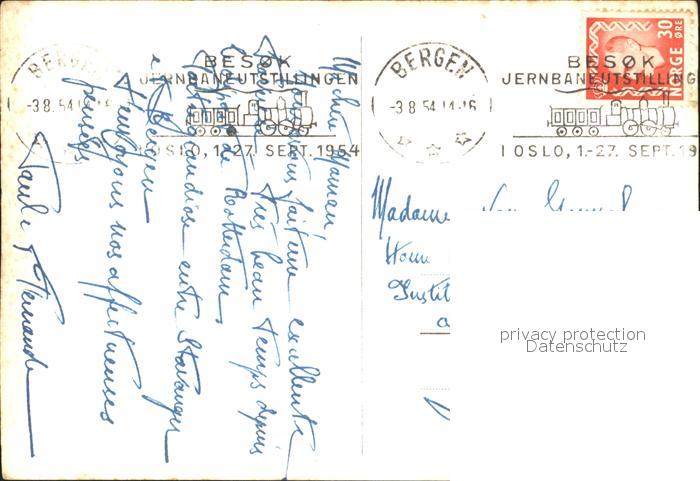 BERGEN
-3.8.54.14-16
BESØK
JERNBANEUTSTILLINGEN
I OSLO, 1.-27. SEPT. 1954
BERGEN
-3.8.54.14-16
BESØK
JERNBANEUTSTILLING
I OSLO, 1.-27. SEPT. 19
NORGE 30 ØRE
Ma chère Maman!
Nous avons fait une excellente
Très beau temps depuis
de Rotterdam
grandiose entre Stavanger
et Bergen
T'envoyons nos affectueuses
pensées
Paul & Fernande
Madame
Instit
privacy protection
Datenschutz